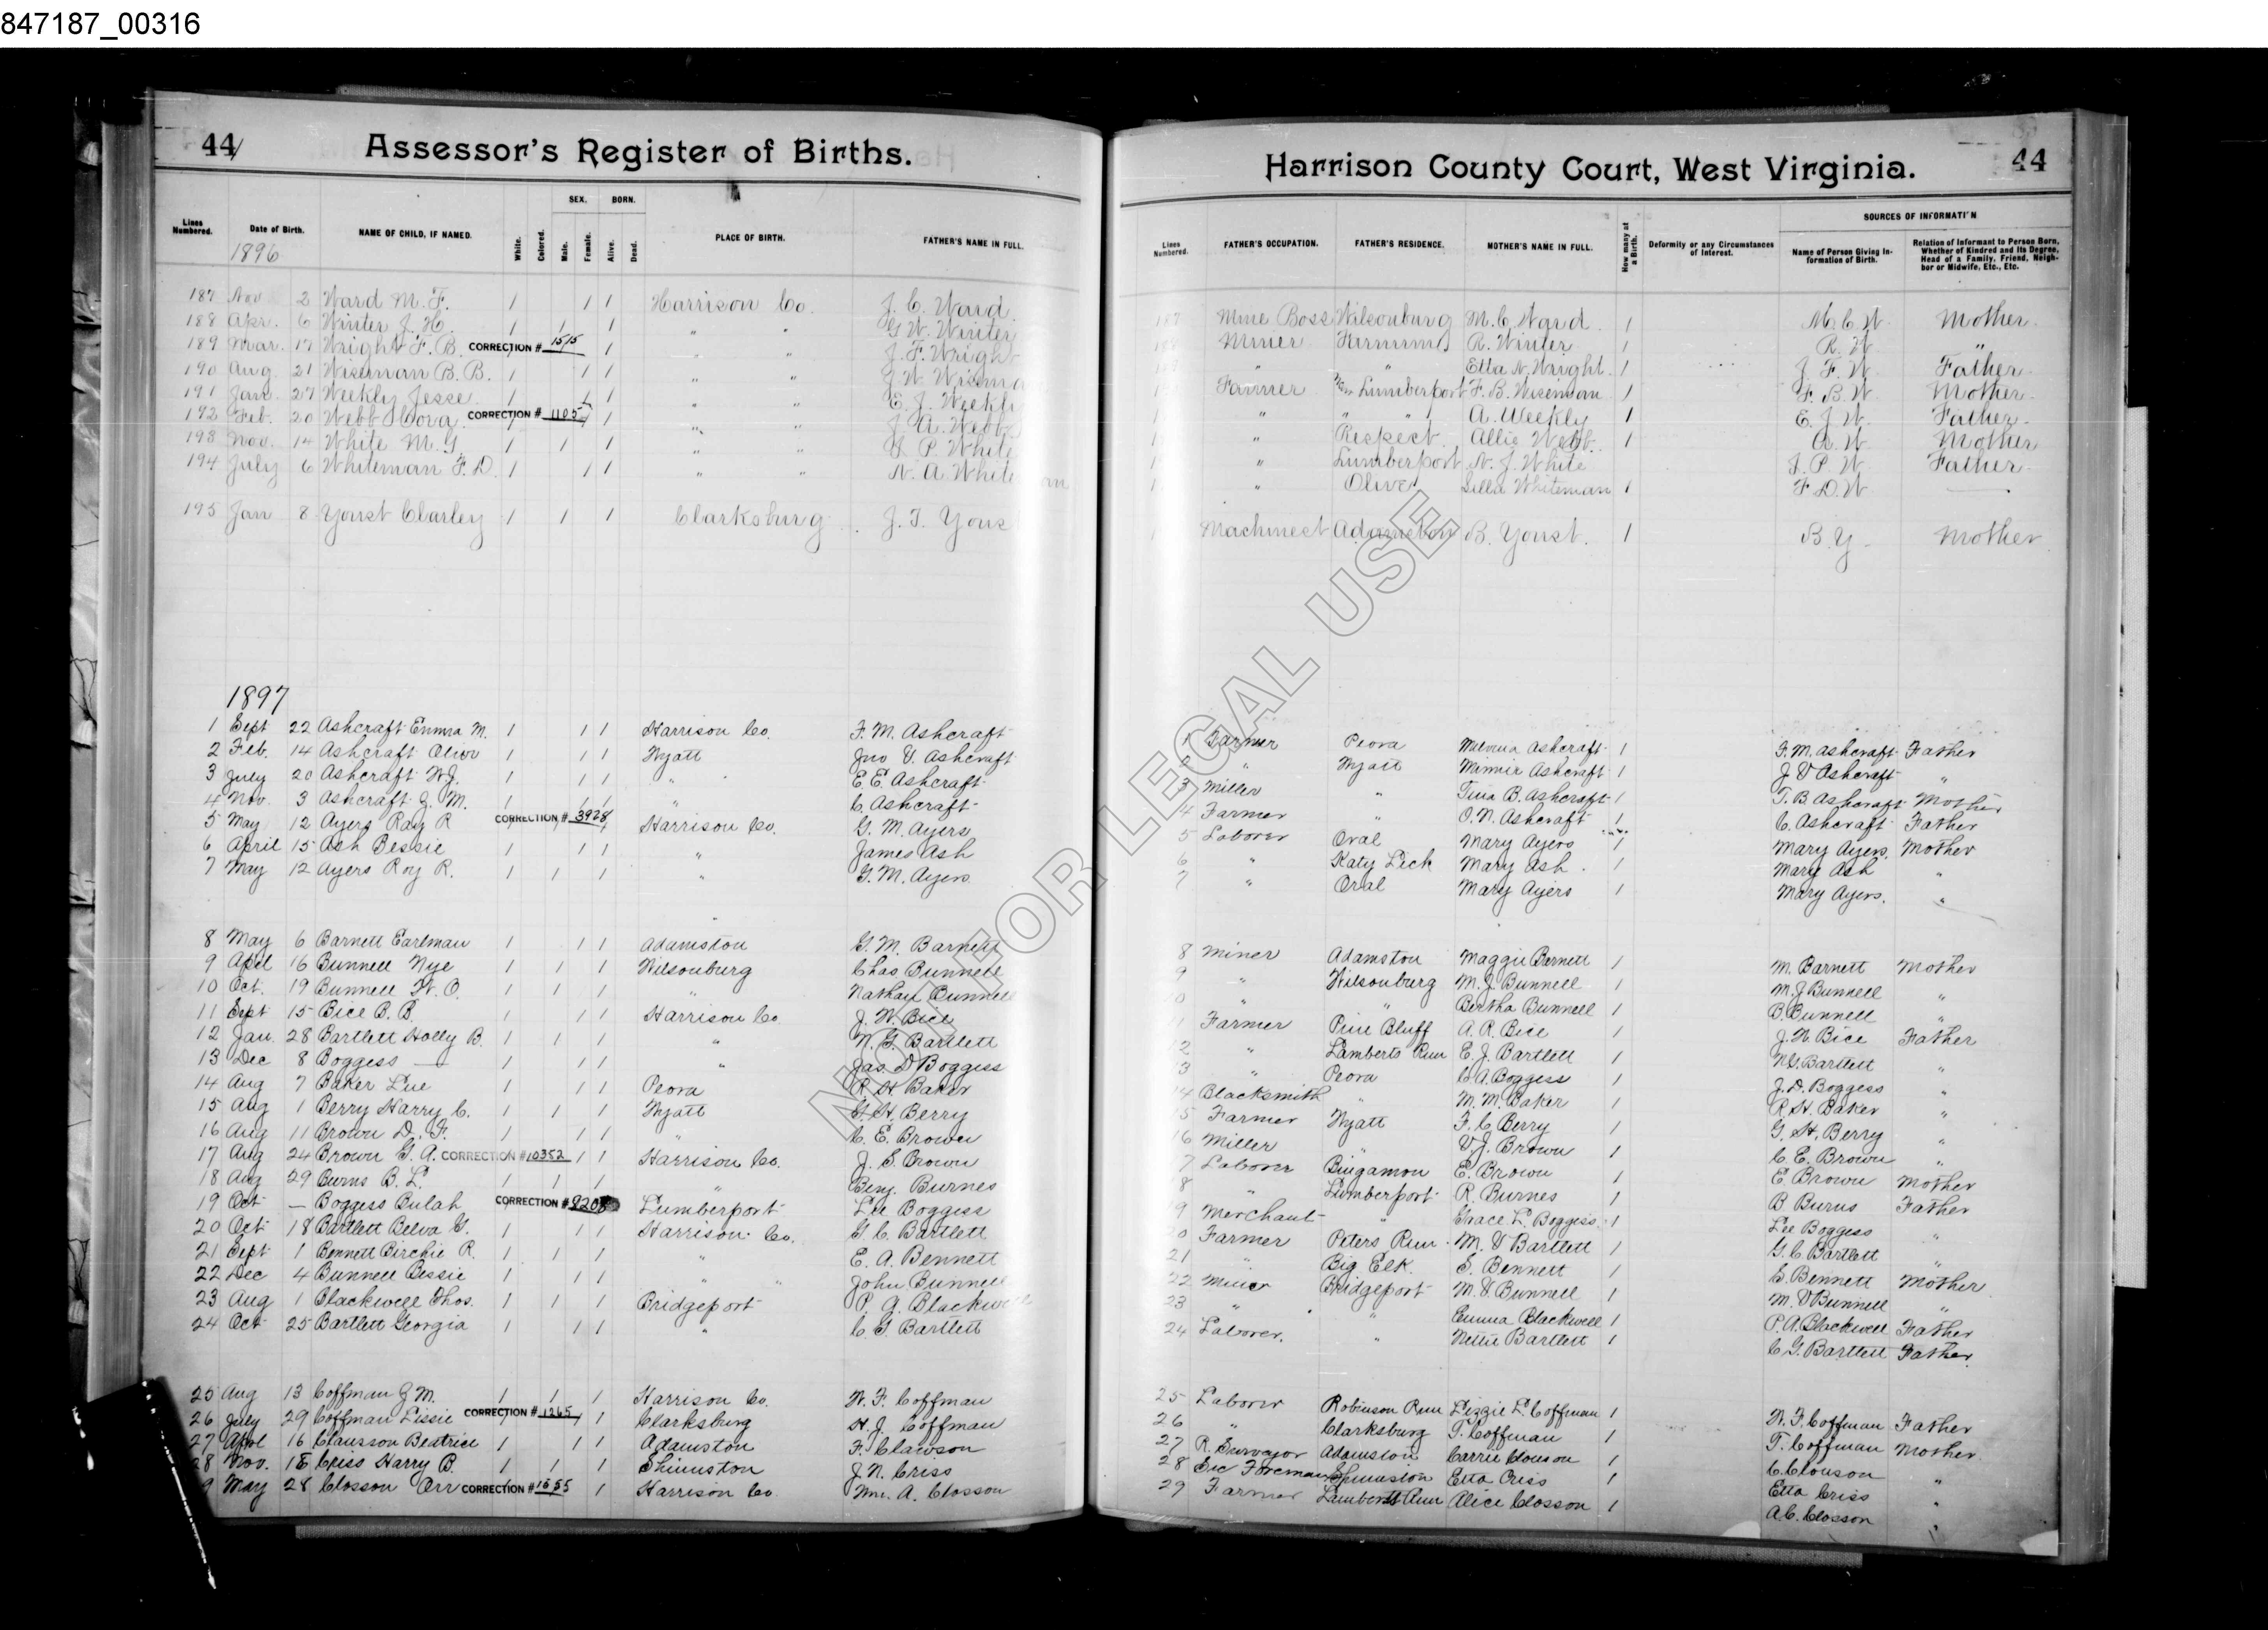 847187_00316
44 Assessor's Register of Births.
Lines Numbered. Date of Birth. NAME OF CHILD, IF NAMED. White. Colored. SEX. Male. Female. BORN. Alive. Dead. PLACE OF BIRTH. FATHER'S NAME IN FULL.
1896
187 Nov 2 Ward M. F. 1 1 1 Harrison Co. J. C. Ward
188 Apr. 6 Winter J. H. 1 1 1 " " G. W. Winter
189 Mar. 17 Wright F. B. CORRECTION # 1515 1 " " J. F. Wright
190 Aug. 21 Wiseman B. B. 1 1 1 " " J. W. Wisema
191 Jan 27 Weekly Jesse 1 1 1 " " E. J. Weekl
192 Feb. 20 Webb Cova CORRECTION # 1105 1 " " J. A. Webb
193 Nov. 14 White M. G. 1 1 1 " " J. P. White
194 July 6 Whiteman F. D. 1 1 1 " " N. A. White an
195 Jan 8 Youst Charley 1 1 1 Clarksburg J. T. Yous
1897
1 Sept 22 Ashcraft Emma M. 1 1 1 Harrison Co. F. M. Ashcraft
2 Feb. 14 Ashcraft Oliver 1 1 1 Wyatt Jno V. Ashcraft
3 July 20 Ashcraft W. J. 1 1 1 " E. E. Ashcraft
4 Nov. 3 Ashcraft J. M. 1 1 1 " C. Ashcraft
5 May 12 Ayers Ray R CORRECTION # 3928 Harrison Co. G. M. Ayers
6 April 15 Ash Bessie 1 1 1 " James Ash
7 May 12 Ayers Roy R. 1 1 1 " G. M. Ayers
8 May 6 Barnett Earlman 1 1 1 Adamston G. M. Barnett
9 April 16 Bunnell Nye 1 1 1 Wilsonburg Chas Bunnell
10 Oct. 19 Bunnell W. O. 1 1 1 " Nathan Bunnell
11 Sept 15 Bice B. B. 1 1 1 Harrison Co J. W. Bice
12 Jan. 28 Bartlett Holly B. 1 1 1 " N. G. Bartlett
13 Dec 8 Boggess — 1 1 1 " Jas. D Boggess
14 Aug 7 Baker Lue 1 1 1 Peora R. H. Baker
15 Aug 1 Berry Harry C. 1 1 1 Wyatt G. H. Berry
16 Aug 11 Brown D. F. 1 1 1 " C. E. Brown
17 Aug 24 Brown G. A. CORRECTION # 10352 1 1 Harrison Co. J. S. Brown
18 Aug 29 Burns B. L. 1 1 1 " Benj. Burnes
19 Oct — Boggess Bulah CORRECTION # 8208 Lumberport Lee Boggess
20 Oct 18 Bartlett Belva G. 1 1 1 Harrison Co. G. C. Bartlett
21 Sept 1 Bennett Birchie R. 1 1 1 " E. A. Bennett
22 Dec 4 Bunnell Bessie 1 1 1 " " John Bunnell
23 Aug 1 Blackwell Thos. 1 1 1 Bridgeport P. A. Blackwell
24 Oct 25 Bartlett Georgia 1 1 1 " C. G. Bartlett
25 Aug 13 Coffman J M. 1 1 1 Harrison Co. W. F. Coffman
26 July 29 Coffman Lissie CORRECTION # 1265 1 Clarksburg H. J. Coffman
27 April 16 Clausson Beatrice 1 1 1 Adamston F. Clawson
28 Nov. 18 Criss Harry B. 1 1 1 Shinnston J. N. Criss
9 May 28 Closson Orr CORRECTION # 1555 1 Harrison Co. Wm. A. Closson
Harrison County Court, West Virginia. 44
Lines Numbered. FATHER'S OCCUPATION. FATHER'S RESIDENCE. MOTHER'S NAME IN FULL. How many at a Birth. Deformity or any Circumstances of Interest. SOURCES OF INFORMATI'N Name of Person Giving Information of Birth. Relation of Informant to Person Born, Whether of Kindred and Its Degree, Head of a Family, Friend, Neighbor or Midwife, Etc., Etc.
187 Mine Boss Wilsonburg M. C. Ward 1 M. C. W. Mother
188 Miner Farnum R. Winter 1 R. W. "
" " Etta N. Wright 1 J. F. W. Father
Farmer Lumberport F. B. Wiseman 1 F. B. W. Mother
" " " A. Weekly 1 E. J. W. Father
" Respect Allie Webb 1 A. W. Mother
" Lumberport N. J. White J. P. W. Father
" Olive Lella Whiteman 1 F. D. W. —
Machinest Adamston B. Youst. 1 B. Y. Mother
1 Farmer Peora Malvina Ashcraft 1 F. M. Ashcraft Father
2 " Wyatt Minnie Ashcraft 1 J V Ashcraft "
3 Miller " Tina B. Ashcraft 1 T. B. Ashcraft Mother
4 Farmer " O. N. Ashcraft 1 C. Ashcraft Father
5 Laborer Oral Mary Ayers 1 Mary Ayers. Mother
6 " Katy Lick Mary Ash 1 Mary Ash "
7 " Oral Mary Ayers 1 Mary Ayers. "
8 Miner Adamston Maggie Barnett 1 M. Barnett Mother
9 " Wilsonburg M. J. Bunnell 1 M. J Bunnell "
10 " " Bertha Bunnell 1 B. Bunnell "
11 Farmer Pine Bluff A. R. Bice 1 J. W. Bice Father
12 " Lamberts Run E. J. Bartlett 1 N G. Bartlett "
13 " Peora C. A. Boggess 1 J. D. Boggess "
14 Blacksmith " M. M. Baker 1 R. H. Baker "
15 Farmer Wyatt F. C Berry 1 G. H. Berry "
16 Miller " V. J. Brown 1 C. E. Brown "
7 Laborer Bingamon E. Brown 1 E. Brown Mother
18 " Lumberport R. Burnes 1 B Burns Father
19 Merchant " Grace L. Boggess. 1 Lee Boggess "
20 Farmer Peters Run M. V Bartlett 1 G. C Bartlett "
21 " Big Elk. S. Bennett 1 S. Bennett Mother
22 Miner Bridgeport M. V. Bunnell 1 M. V Bunnell "
23 " " Emma Blackwell 1 P. A. Blackwell Father
24 Laborer. " Nettie Bartlett 1 C G. Bartlett Father
25 Laborer Robinson Run Lizzie L. Coffman 1 W. F. Coffman Father
26 " Clarksburg T. Coffman 1 T. Coffman Mother
27 R. Surveyor Adamston Carrie Clouson 1 C. Clouson "
28 Sec Foreman Shinnston Etta Criss 1 Etta Criss "
29 Farmer Lambert Run Alice Closson 1 A. C. Closson "
NOT FOR LEGAL USE